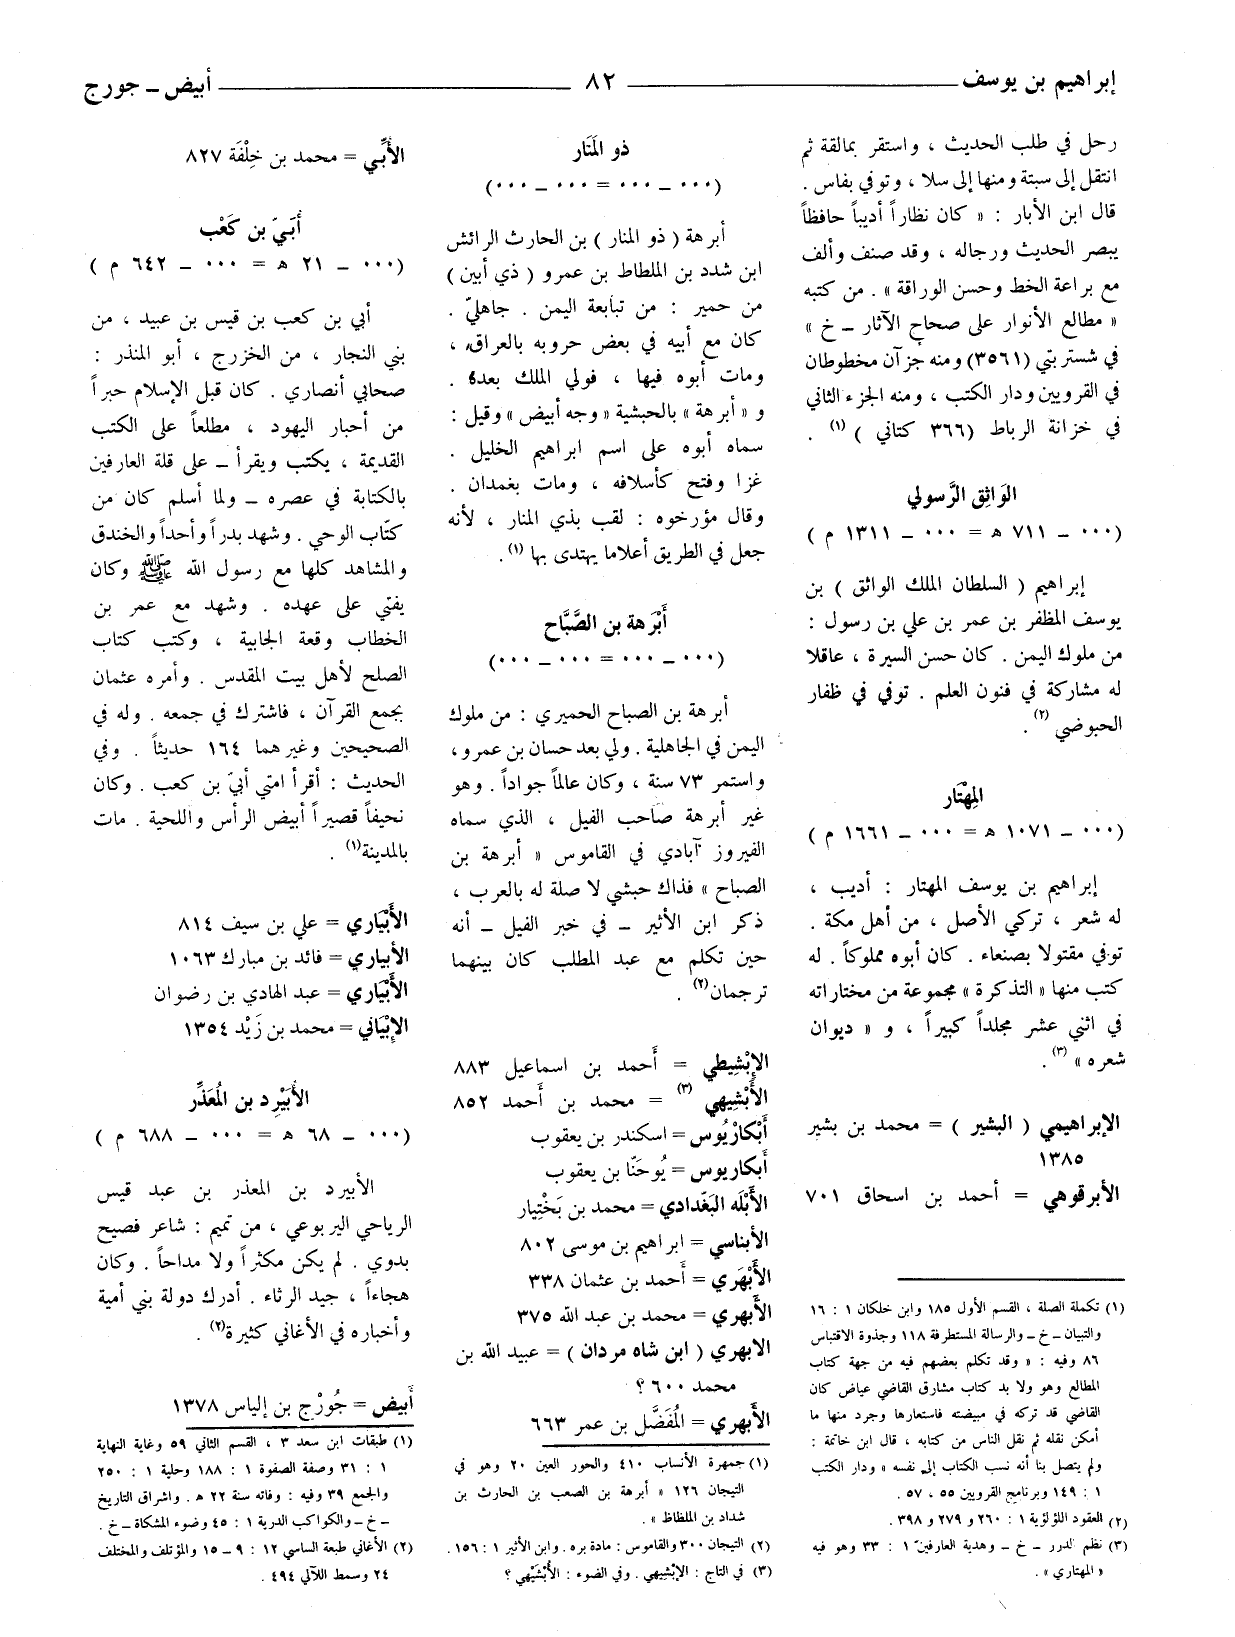 إبراهيم بن يوسف ــ ٨٢ ــ أبيض ــ جورج
رحل في طلب الحديث ، واستقر بمالقة ثم
انتقل إلى سبتة ومنها إلى سلا ، وتوفي بفاس .
قال ابن الأبار : « كان نظاراً أديباً حافظاً
يبصر الحديث ورجاله ، وقد صنف وألف
مع براعة الخط وحسن الوراقة » . من كتبه
« مطالع الأنوار على صحاح الآثار ــ خ »
في شستربتي (٣٥٦١) ومنه جزآن مخطوطان
في القرويين ودار الكتب ، ومنه الجزء الثاني
في خزانة الرباط (٣٦٦ كتاني ) (١) .
الوَاثِق الرَّسولي
(٠٠٠ ــ ٧١١ ه = ٠٠٠ ــ ١٣١١ م )
إبراهيم ( السلطان الملك الواثق ) بن
يوسف المظفر بن عمر بن علي بن رسول :
من ملوك اليمن . كان حسن السيرة ، عاقلا
له مشاركة في فنون العلم . توفي في ظفار
الحبوضي (٢) .
المِهْتَار
(٠٠٠ ــ ١٠٧١ ه = ٠٠٠ ــ ١٦٦١ م )
إبراهيم بن يوسف المهتار : أديب ،
له شعر ، تركي الأصل ، من أهل مكة .
توفي مقتولا بصنعاء . كان أبوه مملوكاً . له
كتب منها « التذكرة » مجموعة من مختاراته
في اثني عشر مجلداً كبيراً ، و « ديوان
شعره » (٣) .
الإبراهيمي ( البشير ) = محمد بن بشير
١٣٨٥
الأبرقوهي = أحمد بن اسحاق ٧٠١
(١) تكملة الصلة ، القسم الأول ١٨٥ وابن خلكان ١ : ١٦
والتبيان ــ خ ــ والرسالة المستطرفة ١١٨ وجذوة الاقتباس
٨٦ وفيه : « وقد تكلم بعضهم فيه من جهة كتاب
المطالع وهو ولا بد كتاب مشارق القاضي عياض كان
القاضي قد تركه في مبيضته فاستعارها وجرد منها ما
أمكن نقله ثم نقل الناس من كتابه ، قال ابن خاتمة :
ولم يتصل بنا أنه نسب الكتاب إلى نفسه » ودار الكتب
١ : ١٤٩ وبرنامج القرويين ٥٥ ، ٥٧ .
(٢) العقود اللؤلؤية ١ : ٢٦٠ و ٢٧٩ و ٣٩٨ .
(٣) نظم الدرر ــ خ ــ وهدية العارفين ١ : ٣٣ وهو فيه
« المهتاري » .
ذو المَنَار
(٠٠٠ ــ ٠٠٠ = ٠٠٠ ــ ٠٠٠)
أبرهة ( ذو المنار ) بن الحارث الرائش
ابن شدد بن الملطاط بن عمرو ( ذي أبين )
من حمير : من تبابعة اليمن . جاهليّ .
كان مع أبيه في بعض حروبه بالعراق ،
ومات أبوه فيها ، فولي الملك بعده .
و « أبرهة » بالحبشية « وجه أبيض » وقيل :
سماه أبوه على اسم ابراهيم الخليل .
غزا وفتح كأسلافه ، ومات بغمدان .
وقال مؤرخوه : لقب بذي المنار ، لأنه
جعل في الطريق أعلاما يهتدى بها (١) .
أَبْرَهة بن الصَّبَّاح
(٠٠٠ ــ ٠٠٠ = ٠٠٠ ــ ٠٠٠)
أبرهة بن الصباح الحميري : من ملوك
اليمن في الجاهلية . ولي بعد حسان بن عمرو ،
واستمر ٧٣ سنة ، وكان عالماً جواداً . وهو
غير أبرهة صاحب الفيل ، الذي سماه
الفيروز آبادي في القاموس « أبرهة بن
الصباح » فذاك حبشي لا صلة له بالعرب ،
ذكر ابن الأثير ــ في خبر الفيل ــ أنه
حين تكلم مع عبد المطلب كان بينهما
ترجمان (٢) .
الإبْشِيطي = أَحمد بن اسماعيل ٨٨٣
الأبْشِيهي (٣) = محمد بن أَحمد ٨٥٢
أَبْكارْيُوس = اسكندر بن يعقوب
أبكاريوس = يُوحَنّا بن يعقوب
الأَبْلَه البَغْدادي = محمد بن بَخْتِيار
الأبناسي = ابراهيم بن موسى ٨٠٢
الأَبْهَري = أَحمد بن عثمان ٣٣٨
الأَبهري = محمد بن عبد الله ٣٧٥
الابهري ( ابن شاه مردان ) = عبيد الله بن
محمد ٦٠٠ ؟
الأَبهري = المُفَضَّل بن عمر ٦٦٣
(١) جمهرة الأنساب ٤١٠ والحور العين ٢٠ وهو في
التيجان ١٢٦ « أبرهة بن الصعب بن الحارث بن
شداد بن الملظاظ » .
(٢) التيجان ٣٠٠ والقاموس : مادة بره . وابن الأثير ١ : ١٥٦ .
(٣) في التاج : الإبْشِيهي . وفي الضوء : الأَبْشَيْهي ؟
الأُبِّي = محمد بن خِلْفَة ٨٢٧
أُبَيّ بن كَعْب
(٠٠٠ ــ ٢١ ه = ٠٠٠ ــ ٦٤٢ م )
أبي بن كعب بن قيس بن عبيد ، من
بني النجار ، من الخزرج ، أبو المنذر :
صحابي أنصاري . كان قبل الإسلام حبراً
من أحبار اليهود ، مطلعاً على الكتب
القديمة ، يكتب ويقرأ ــ على قلة العارفين
بالكتابة في عصره ــ ولما أسلم كان من
كتّاب الوحي . وشهد بدراً وأحداً والخندق
والمشاهد كلها مع رسول الله ﷺ وكان
يفتي على عهده . وشهد مع عمر بن
الخطاب وقعة الجابية ، وكتب كتاب
الصلح لأهل بيت المقدس . وأمره عثمان
بجمع القرآن ، فاشترك في جمعه . وله في
الصحيحين وغيرهما ١٦٤ حديثاً . وفي
الحديث : أقرأ امتي أبيّ بن كعب . وكان
نحيفاً قصيراً أبيض الرأس واللحية . مات
بالمدينة (١) .
الأَبْيَاري = علي بن سيف ٨١٤
الأبياري = فائد بن مبارك ١٠٦٣
الأَبْيَاري = عبد الهادي بن رضوان
الإبْيَاني = محمد بن زَيْد ١٣٥٤
الأُبَيْرِد بن المُعَذَّر
(٠٠٠ ــ ٦٨ ه = ٠٠٠ ــ ٦٨٨ م )
الأبيرد بن المعذر بن عبد قيس
الرياحي اليربوعي ، من تميم : شاعر فصيح
بدوي . لم يكن مكثراً ولا مداحاً . وكان
هجاءاً ، جيد الرثاء . أدرك دولة بني أمية
وأخباره في الأغاني كثيرة (٢) .
أَبيض = جُورْج بن إلياس ١٣٧٨
(١) طبقات ابن سعد ٣ ، القسم الثاني ٥٩ وغاية النهاية
١ : ٣١ وصفة الصفوة ١ : ١٨٨ وحلية ١ : ٢٥٠
والجمع ٣٩ وفيه : وفاته سنة ٢٢ ه . واشراق التاريخ
ــ خ ــ والكواكب الدرية ١ : ٤٥ وضوء المشكاة ــ خ .
(٢) الأغاني طبعة الساسي ١٢ : ٩ ــ ١٥ والمؤتلف والمختلف
٢٤ وسمط اللآلي ٤٩٤ .